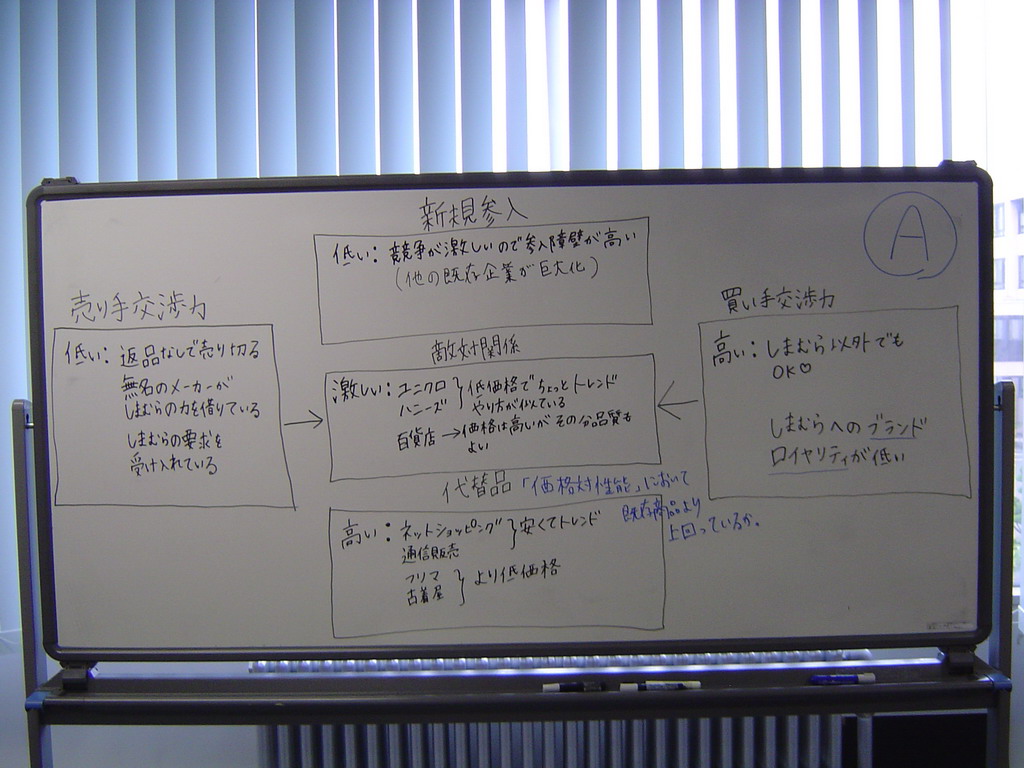 新規参入
低い：競争が激しいので参入障壁が高い
（他の既存企業が巨大化）
A
売り手交渉力
低い：返品なしで売り切る
無名のメーカーが
しまむらの力を借りている
しまむらの要求を
受け入れている
敵対関係
激しい：ユニクロ
ハニーズ
低価格でちょっとトレンド
やり方が似ている
百貨店→価格は高いがその分品質も
よい
買い手交渉力
高い：しまむら以外でも
OK♡
しまむらへのブランド
ロイヤリティが低い
代替品「価格対性能」において
既存商品より
上回っているか。
高い：ネットショッピング
通信販売
安くてトレンド
フリマ
古着屋
より低価格